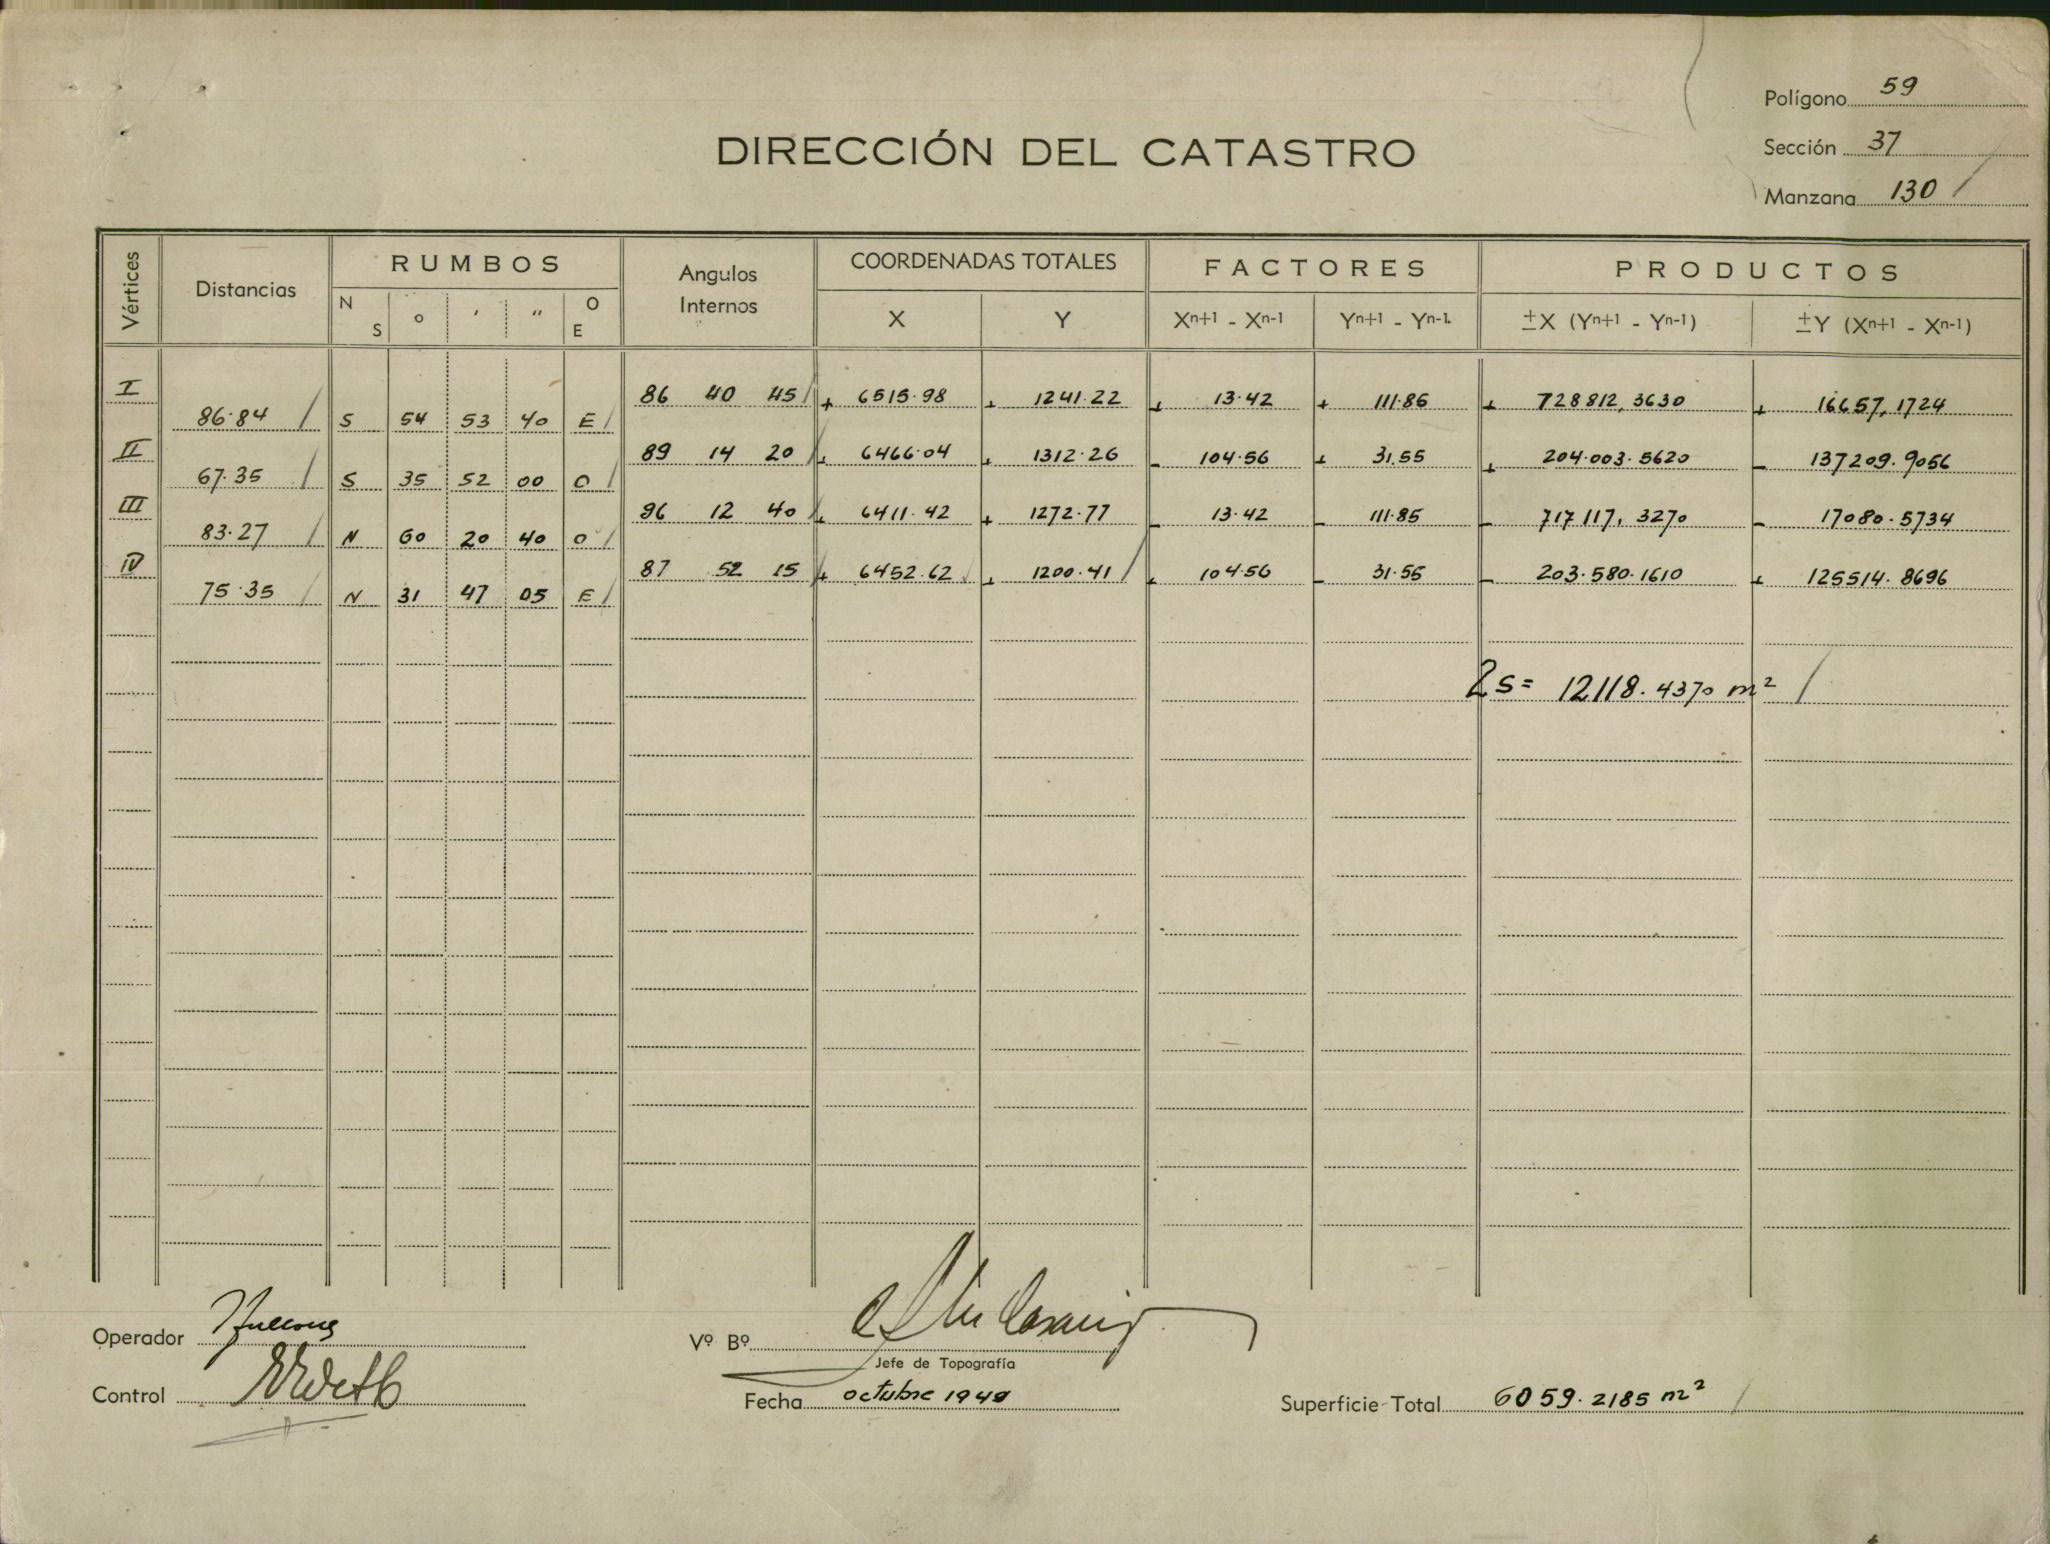 Polígono 59
DIRECCIÓN DEL CATASTRO
Sección 37
Manzana 130
Vértices
Distancias
RUMBOS
N S ° ' " O E
Angulos Internos
COORDENADAS TOTALES
X Y
FACTORES
Xn+1 - Xn-1 Yn+1 - Yn-1
PRODUCTOS
±X (Yn+1 - Yn-1) ±Y (Xn+1 - Xn-1)
I 86 40 45 + 6515.98 + 1241.22 + 13.42 + 111.85 + 728812,3630 + 16657,1724
86.84 S 54 53 40 E
II 89 14 20 + 6466.04 + 1312.26 - 104.56 + 31.55 + 204.003.5620 - 137209.9056
67.35 S 35 52 00 O
III 96 12 40 + 6411.42 + 1272.77 - 13.42 - 111.85 - 717117,3270 - 17080.5734
83.27 N 60 20 40 O
IV 87 52 15 + 6452.62 + 1200.41 + 104.56 - 31.55 - 203.580.1610 + 125514.8696
75.35 N 31 47 05 E
2s= 12118.4370 m²
Operador
Vº Bº
Jefe de Topografía
Control
Fecha octubre 1949
Superficie Total 6059.2185 m²